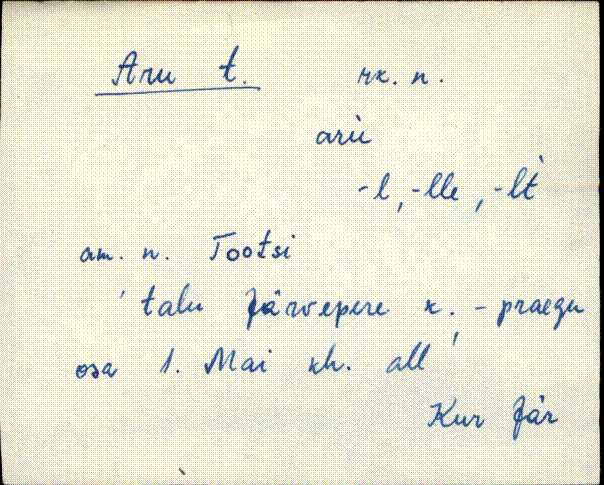 Aru t. rx. n.
arù
-l, -lle, -lt
am. n. Tootsi
'talu Järvepere k., - praegu
osa 1. Mai kh. all'
Kur Jär